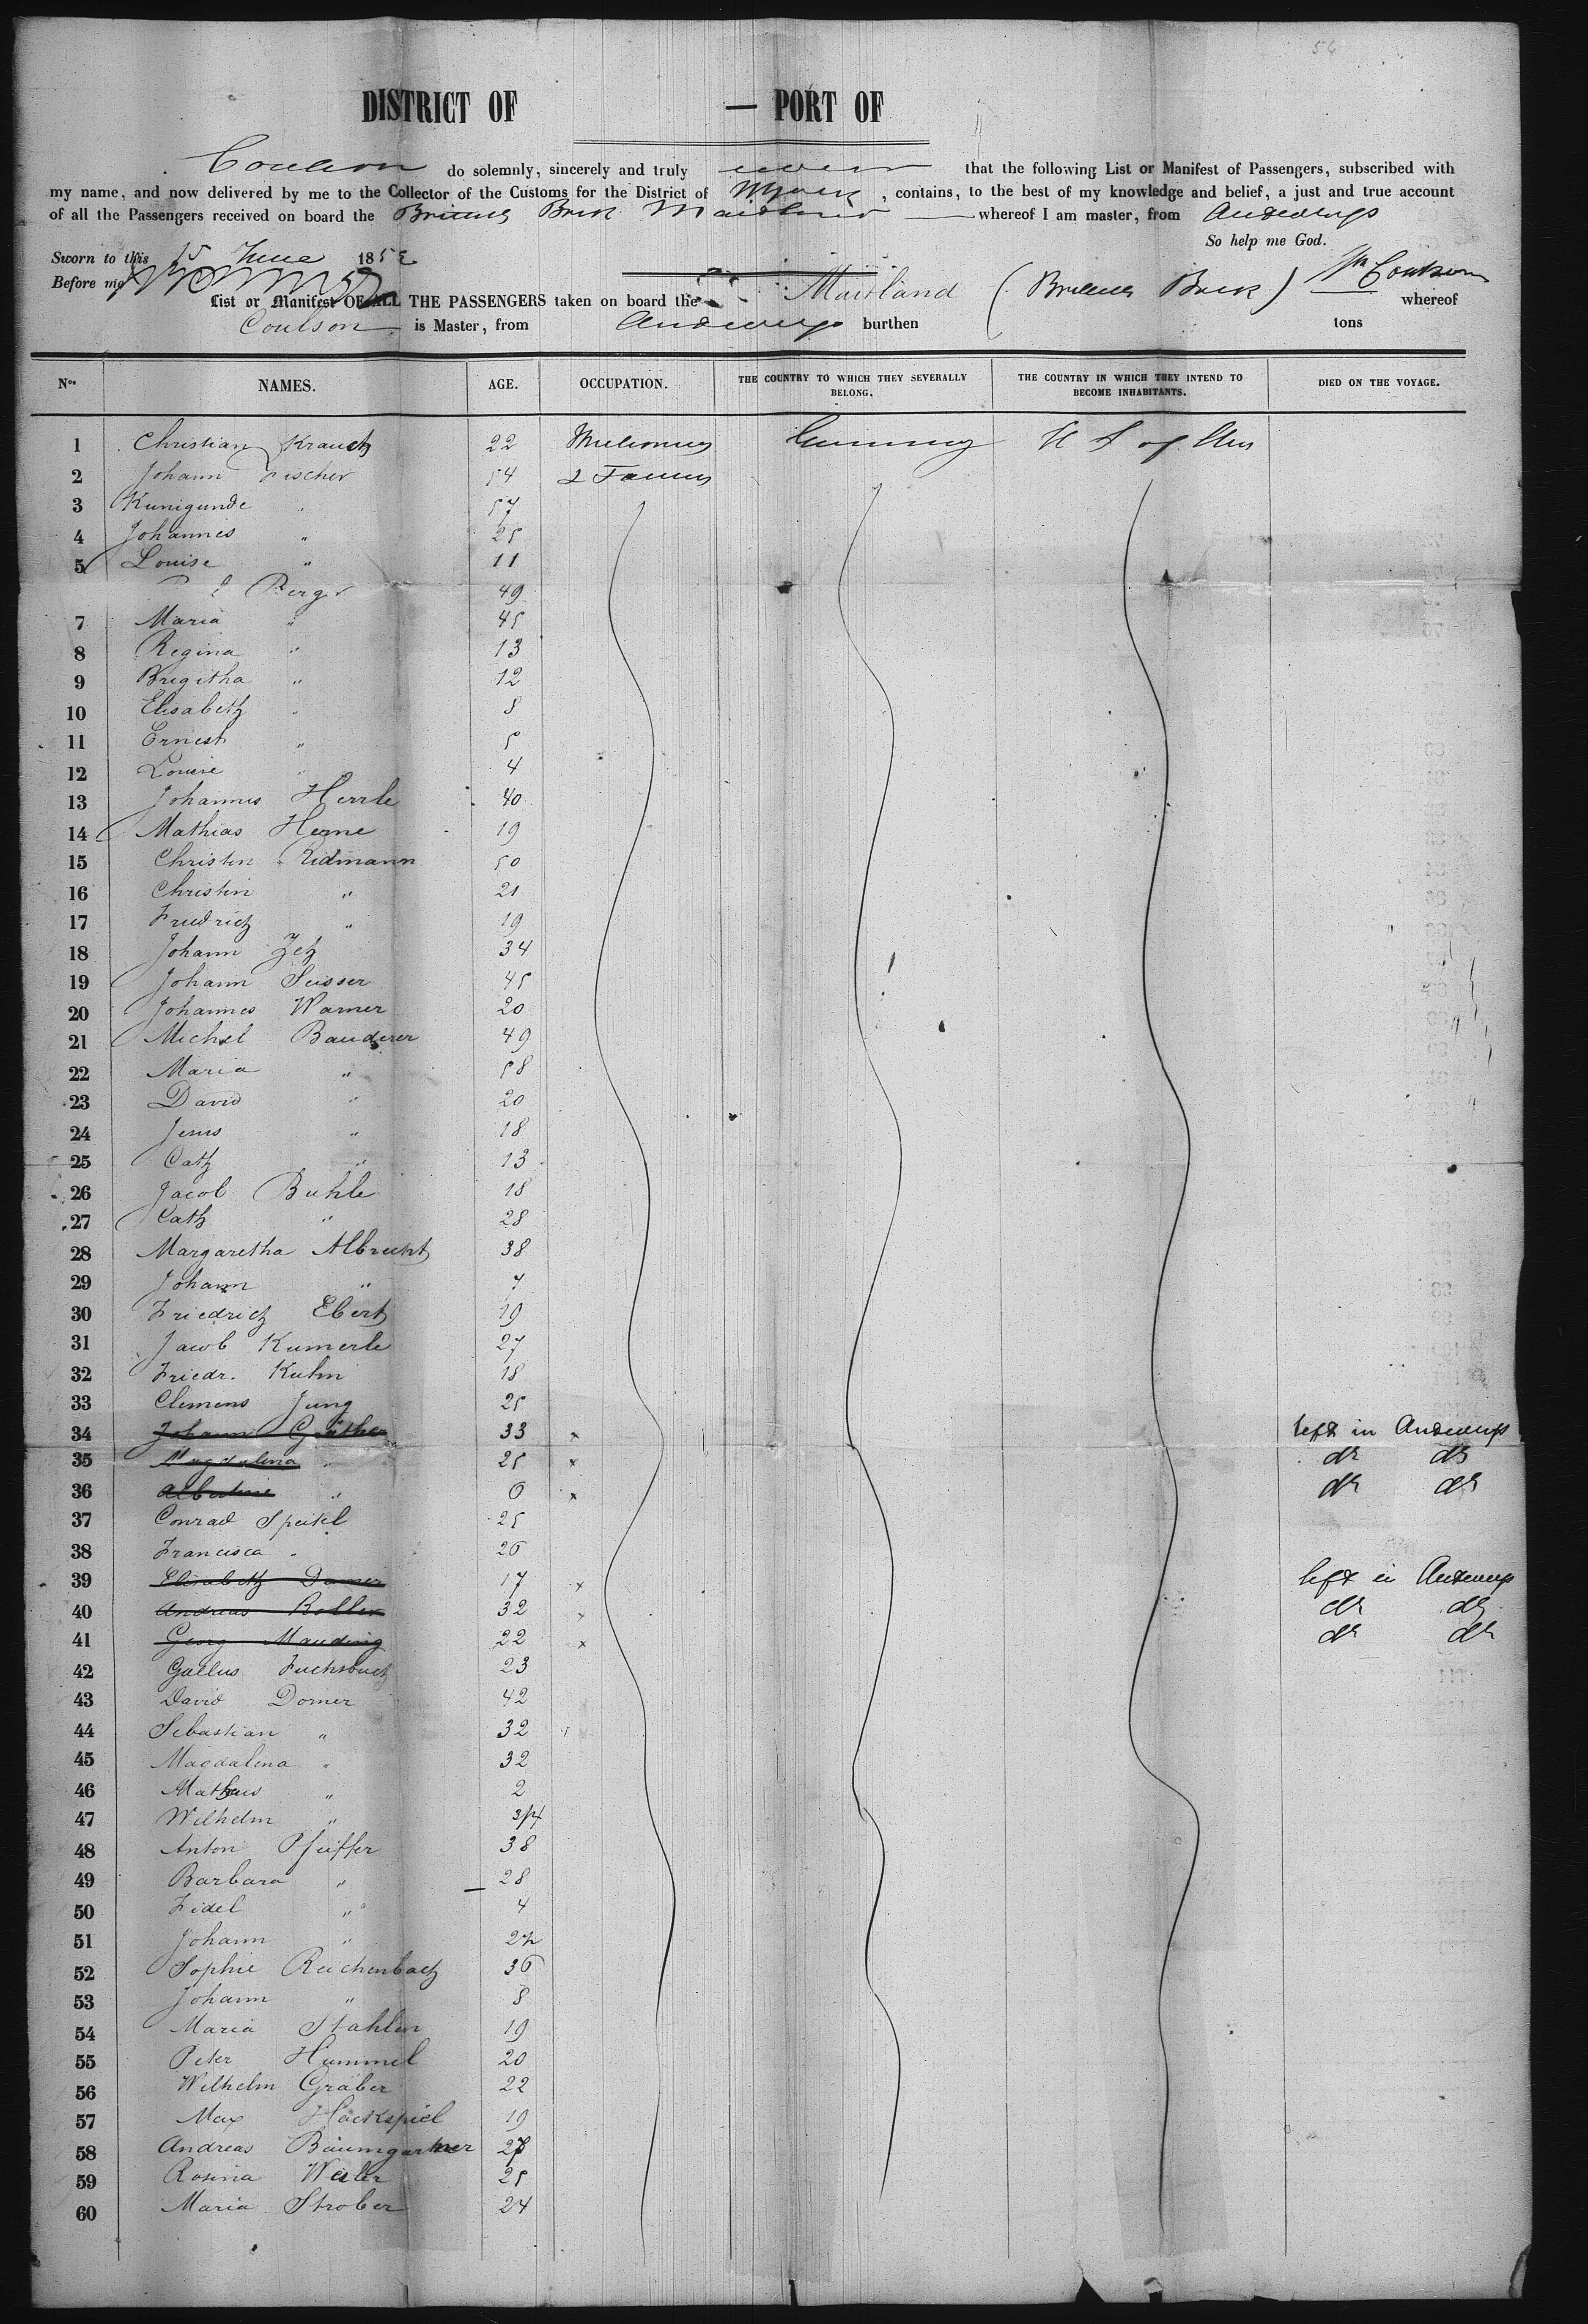 56
DISTRICT OF — PORT OF
Coulson do solemnly, sincerely and truly that the following List or Manifest of Passengers, subscribed with
my name, and now delivered by me to the Collector of the Customs for the District of NYork, contains, to the best of my knowledge and belief, a just and true account
of all the Passengers received on board the Bark Maitland whereof I am master, from Andwerp
So help me God.
Sworn to this 15 June 185
Before me
List or Manifest OF ALL THE PASSENGERS taken on board the Maitland ( Bark ) Coulson whereof
Coulson is Master, from Andwerp burthen tons
Nos NAMES. AGE. OCCUPATION. THE COUNTRY TO WHICH THEY SEVERALLY BELONG. THE COUNTRY IN WHICH THEY INTEND TO BECOME INHABITANTS. DIED ON THE VOYAGE.
1 Christian Krauch 22 Germany U S of Am
2 Johann Fischer 54 & Farmers
3 Kunigunde " 57
4 Johannes " 25
5 Louise " 11
Berger 49
7 Maria " 45
8 Regina " 13
9 Brigitha " 12
10 Elisabeth " 8
11 Ernest " 5
12 Louise " 4
13 Johannes Herrle 40
14 Mathias Herne 19
15 Christin Ridmann 50
16 Christin " 21
17 Friedrich " 19
18 Johann Zeh 34
19 Johann Seisser 45
20 Johannes Warner 20
21 Michel Bauderer 49
22 Maria " 58
23 David " 20
24 Jenis " 18
25 Cath " 13
26 Jacob Buhle 18
27 Cath " 28
28 Margaretha Albrecht 38
29 Johann " 7
30 Friedrich Ebert 19
31 Jacob Kumerle 27
32 Friedr. Kuhn 18
33 Clemens Jung 25
34 Johann Gother 33 x left in Andwerp
35 Magdalena " 25 x do do
36 Albertine " 6 x do do
37 Conrad Speitel 25
38 Francisca " 26
39 Elisabeth Dorner 17 x left in Andwerp
40 Andreas Roller 32 x do do
41 Georg Mauding 22 x do do
42 Gallus Fuchsbuch 23
43 David Dorner 42
44 Sebastian " 32
45 Magdalena " 32
46 Matheus " 2
47 Wilhelm " 3/4
48 Anton Pfeiffer 38
49 Barbara " 28
50 Fidel " 4
51 Johann "
52 Sophie Reichenbach 36
53 Johann " 8
54 Maria Stahlin 19
55 Peter Hummel 20
56 Wilhelm Graber 22
57 Max Hackspiel 19
58 Andreas Baumgartner
59 Rosina Weiler 25
60 Maria Strober 24